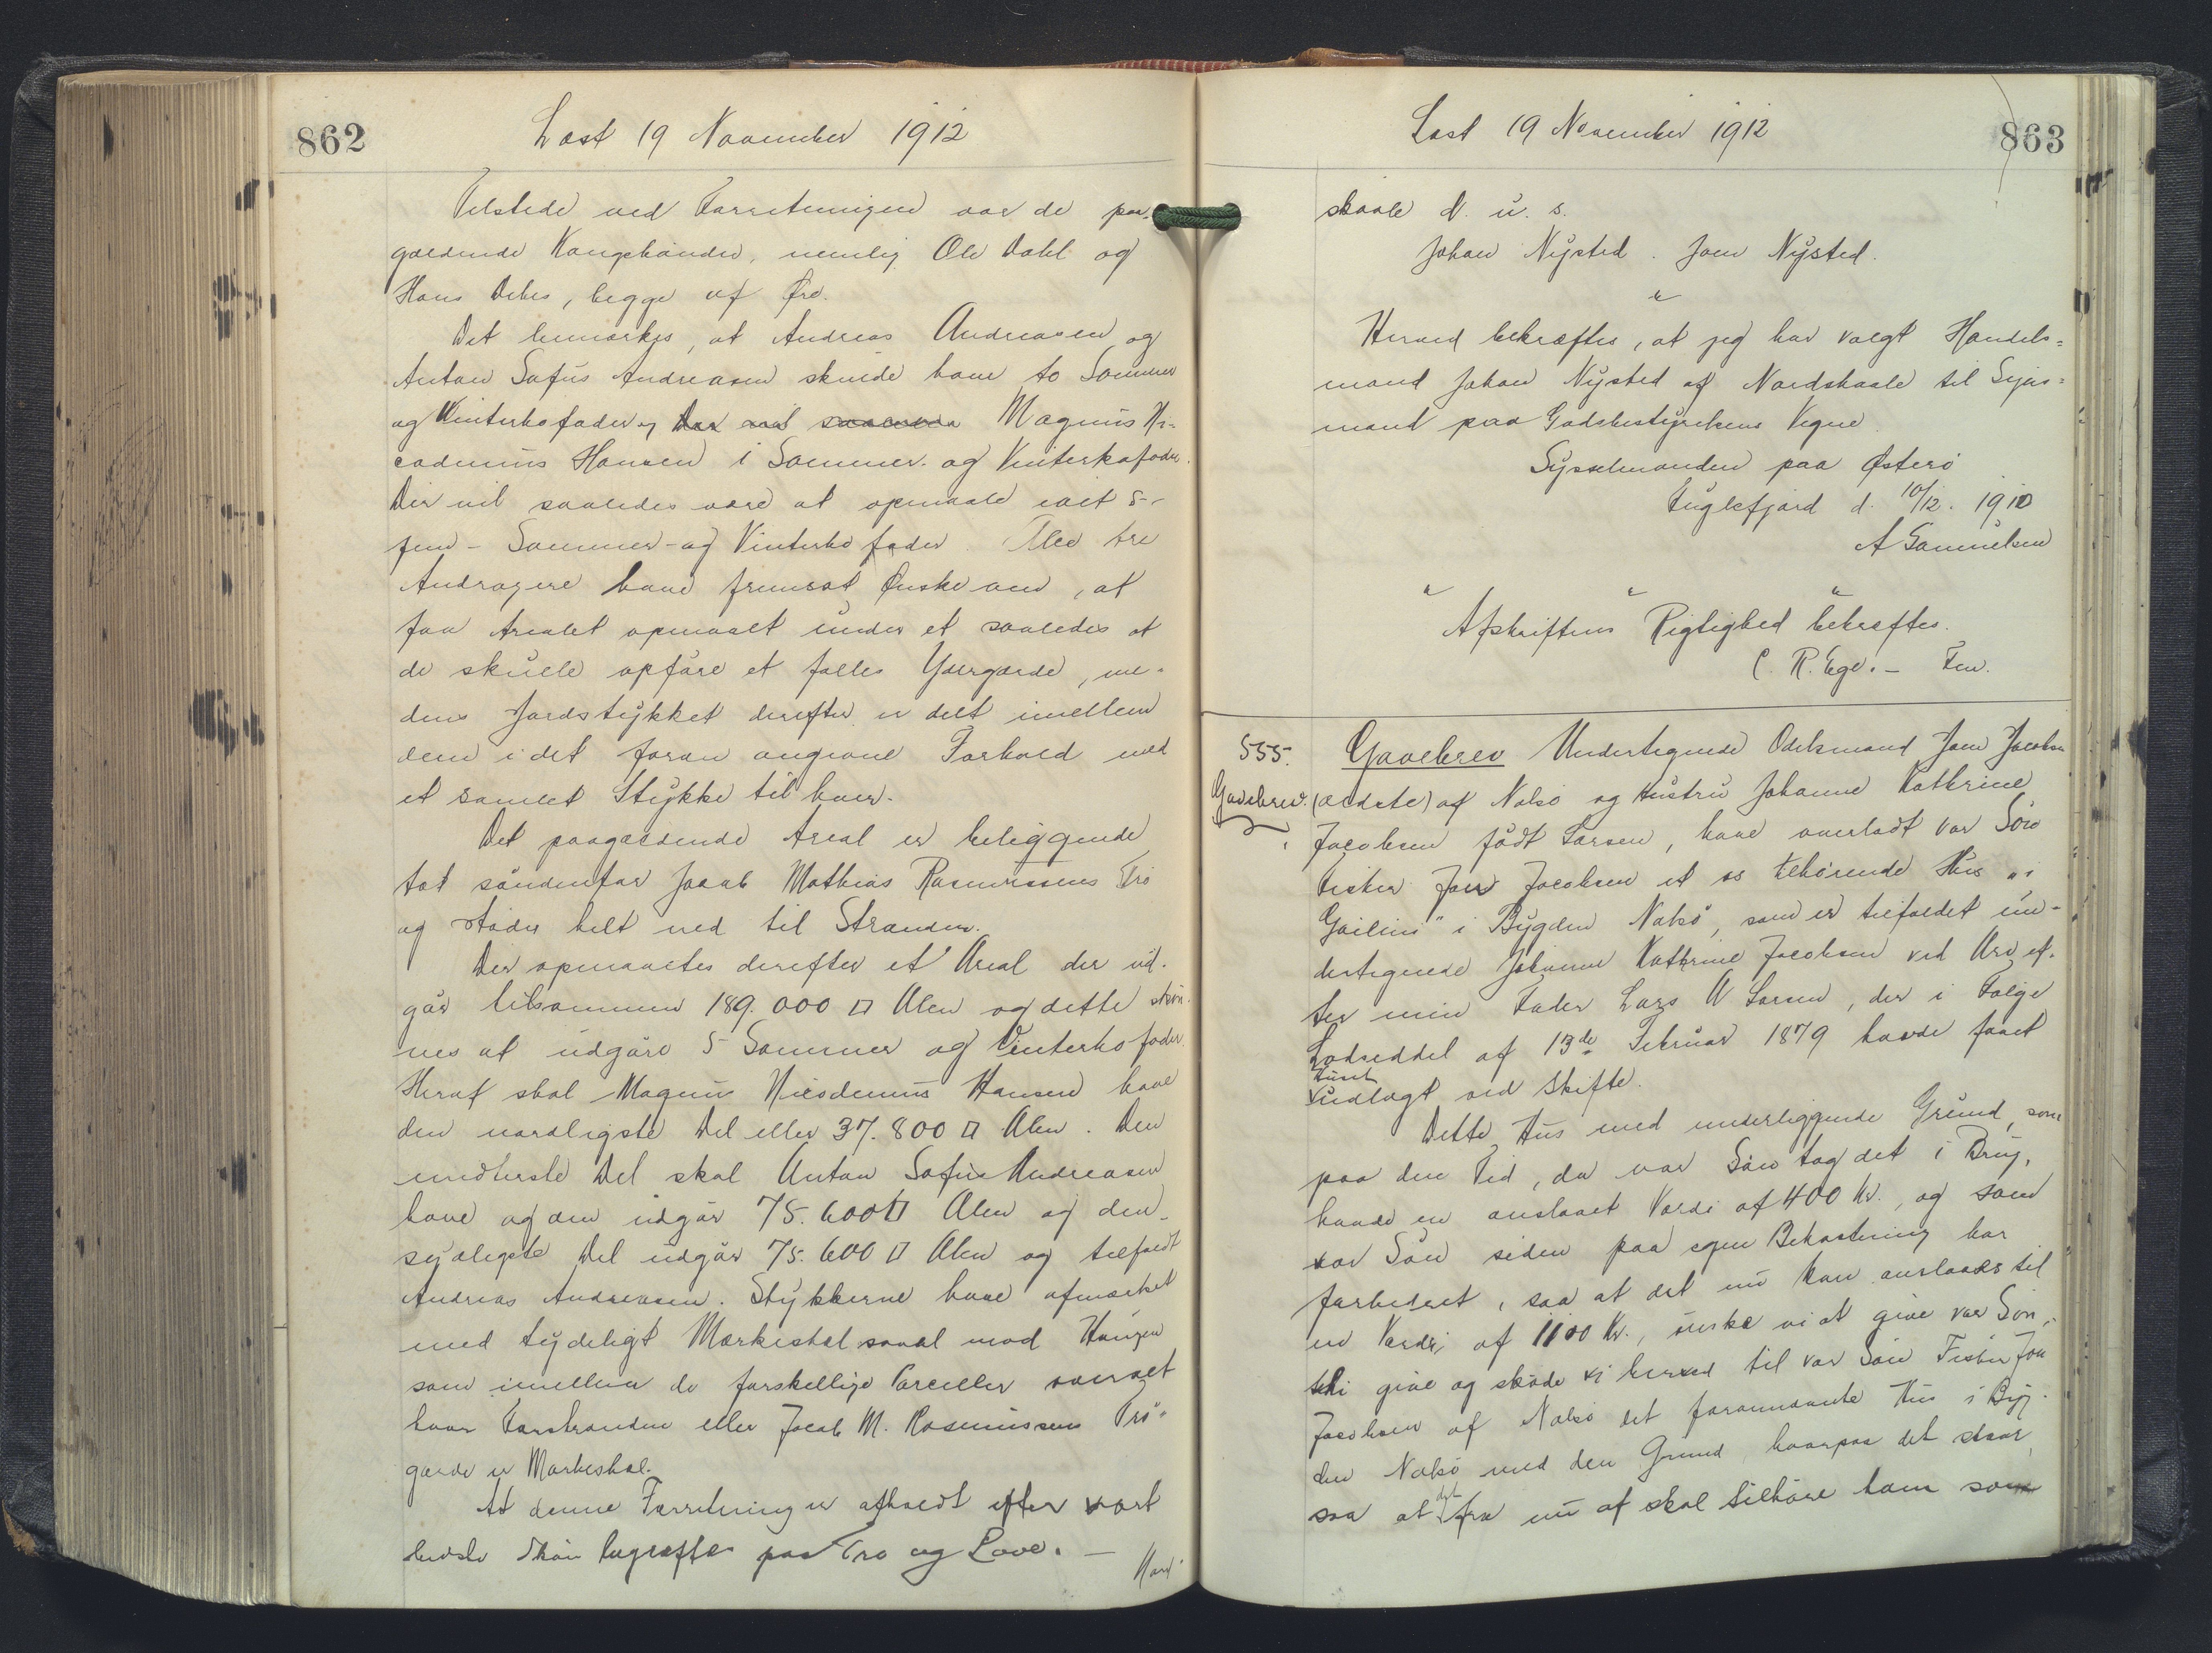 862
Læst 19 November 1912
Tilstede ved Forretningen var de paa-
gældende Kongsbönder, nemlig Ole Dahl og
Hans Debes, begge af Øre.
Det bemærkes, at Andreas Andreasen og
Anton Sofus Andreasen skulde have to Sommer
og Vinterkofoder og Magnus Ni-
codemus Hansen 1 Sommer- og Vinterkofoder.
Der vil saaledes være at opmaale ialt 5-
fem- Sommer- og Vinterkofoder. Alle tre
Andragere have fremsat Ønske om, at
faa Arealet opmaalt under et saaledes at
de skulle opföre et fælles Ydergærde, me-
dens Jordstykket derefter er delt imellem
dem i det foran angivne Forhold med
et samlet Stykke til hver.
Det paagældende Areal er beliggende
tæt söndenfor Jacob Mathias Rasmussens Trö
og støder helt ned til Stranden.
Der opmaaltes derefter et Areal der ud-
gör tilsammen 189.000 □ Alen og dette skön-
nes at udgöre 5 Sommer og Vinterkofoder.
Heraf skal Magnus Nicodemus Hansen have
den nordligste Del eller 37.800 □ Alen. Den
midterste Del skal Anton Sofus Andreasen
have og den udgör 75.600 □ Alen og den
sydligste Del udgör 75.600 □ Alen og tilfaldt
Andreas Andreasen. Stykkerne have afmærket
med tydeligt Markeskel saavel mod Haugen
som imellem de forskellige Parceller overalt
hvor Forstranden eller Jacob M. Rasmussens Trö-
gærde er Markeskel.
At denne Forretning er afholdt efter vort
bedste Skön bekræftes paa Tro og Love. —
Nord-
863
Læst 19 November 1912
skaale d. u. s.
Johan Nysted. Joen Nysted.
Herved bekræftes, at jeg har valgt Handels-
mand Johan Nysted af Nordskaale til Syns-
mand paa Godsbestyrelsens Vegne.
Sysselmanden paa Østerö
Fuglefjord d. 10/12. 1910
A Samuelsen
Afskriftens Rigtighed bekræftes.
C. R. Ege. - Fm.
555.
Gavebrev.
Gavebrev Undertegnede Odelsmand Joen Jacobsen
(ældste) af Nolsö og Hustru Johanne Kathrine
Jacobsen födt Larsen, have overladt vor Sön
Fisker Joen Jacobsen et os tilhörende Hus "i
Gailini" i Bygden Nolsö, som er tilfaldet un-
dertegnede Johanne Kathrine Jacobsen ved Arv ef-
ter min Fader Lars Larsen, der i Fölge
Lodseddel af 13de Februar 1879 havde faaet
Huset
udlagt ved Skifte.
Dette Hus med underliggende Grund, som
paa den Tid, da vor Sön tog det i Brug,
havde en anslaaet Værdi af 400 Kr., og som
vor Sön siden paa egen Bekostning har
forbedret, saa at det nu kan anslaaes til
en Værdi af 1100 Kr., önske vi at give vor Sön,
thi give og sköde vi herved til vor Sön Fisker Joen
Jacobsen af Nolsö det forannævnte Hus i Byg-
den Nolsö med den Grund, hvorpaa det staar
saa at det fra nu af skal tilhöre ham som